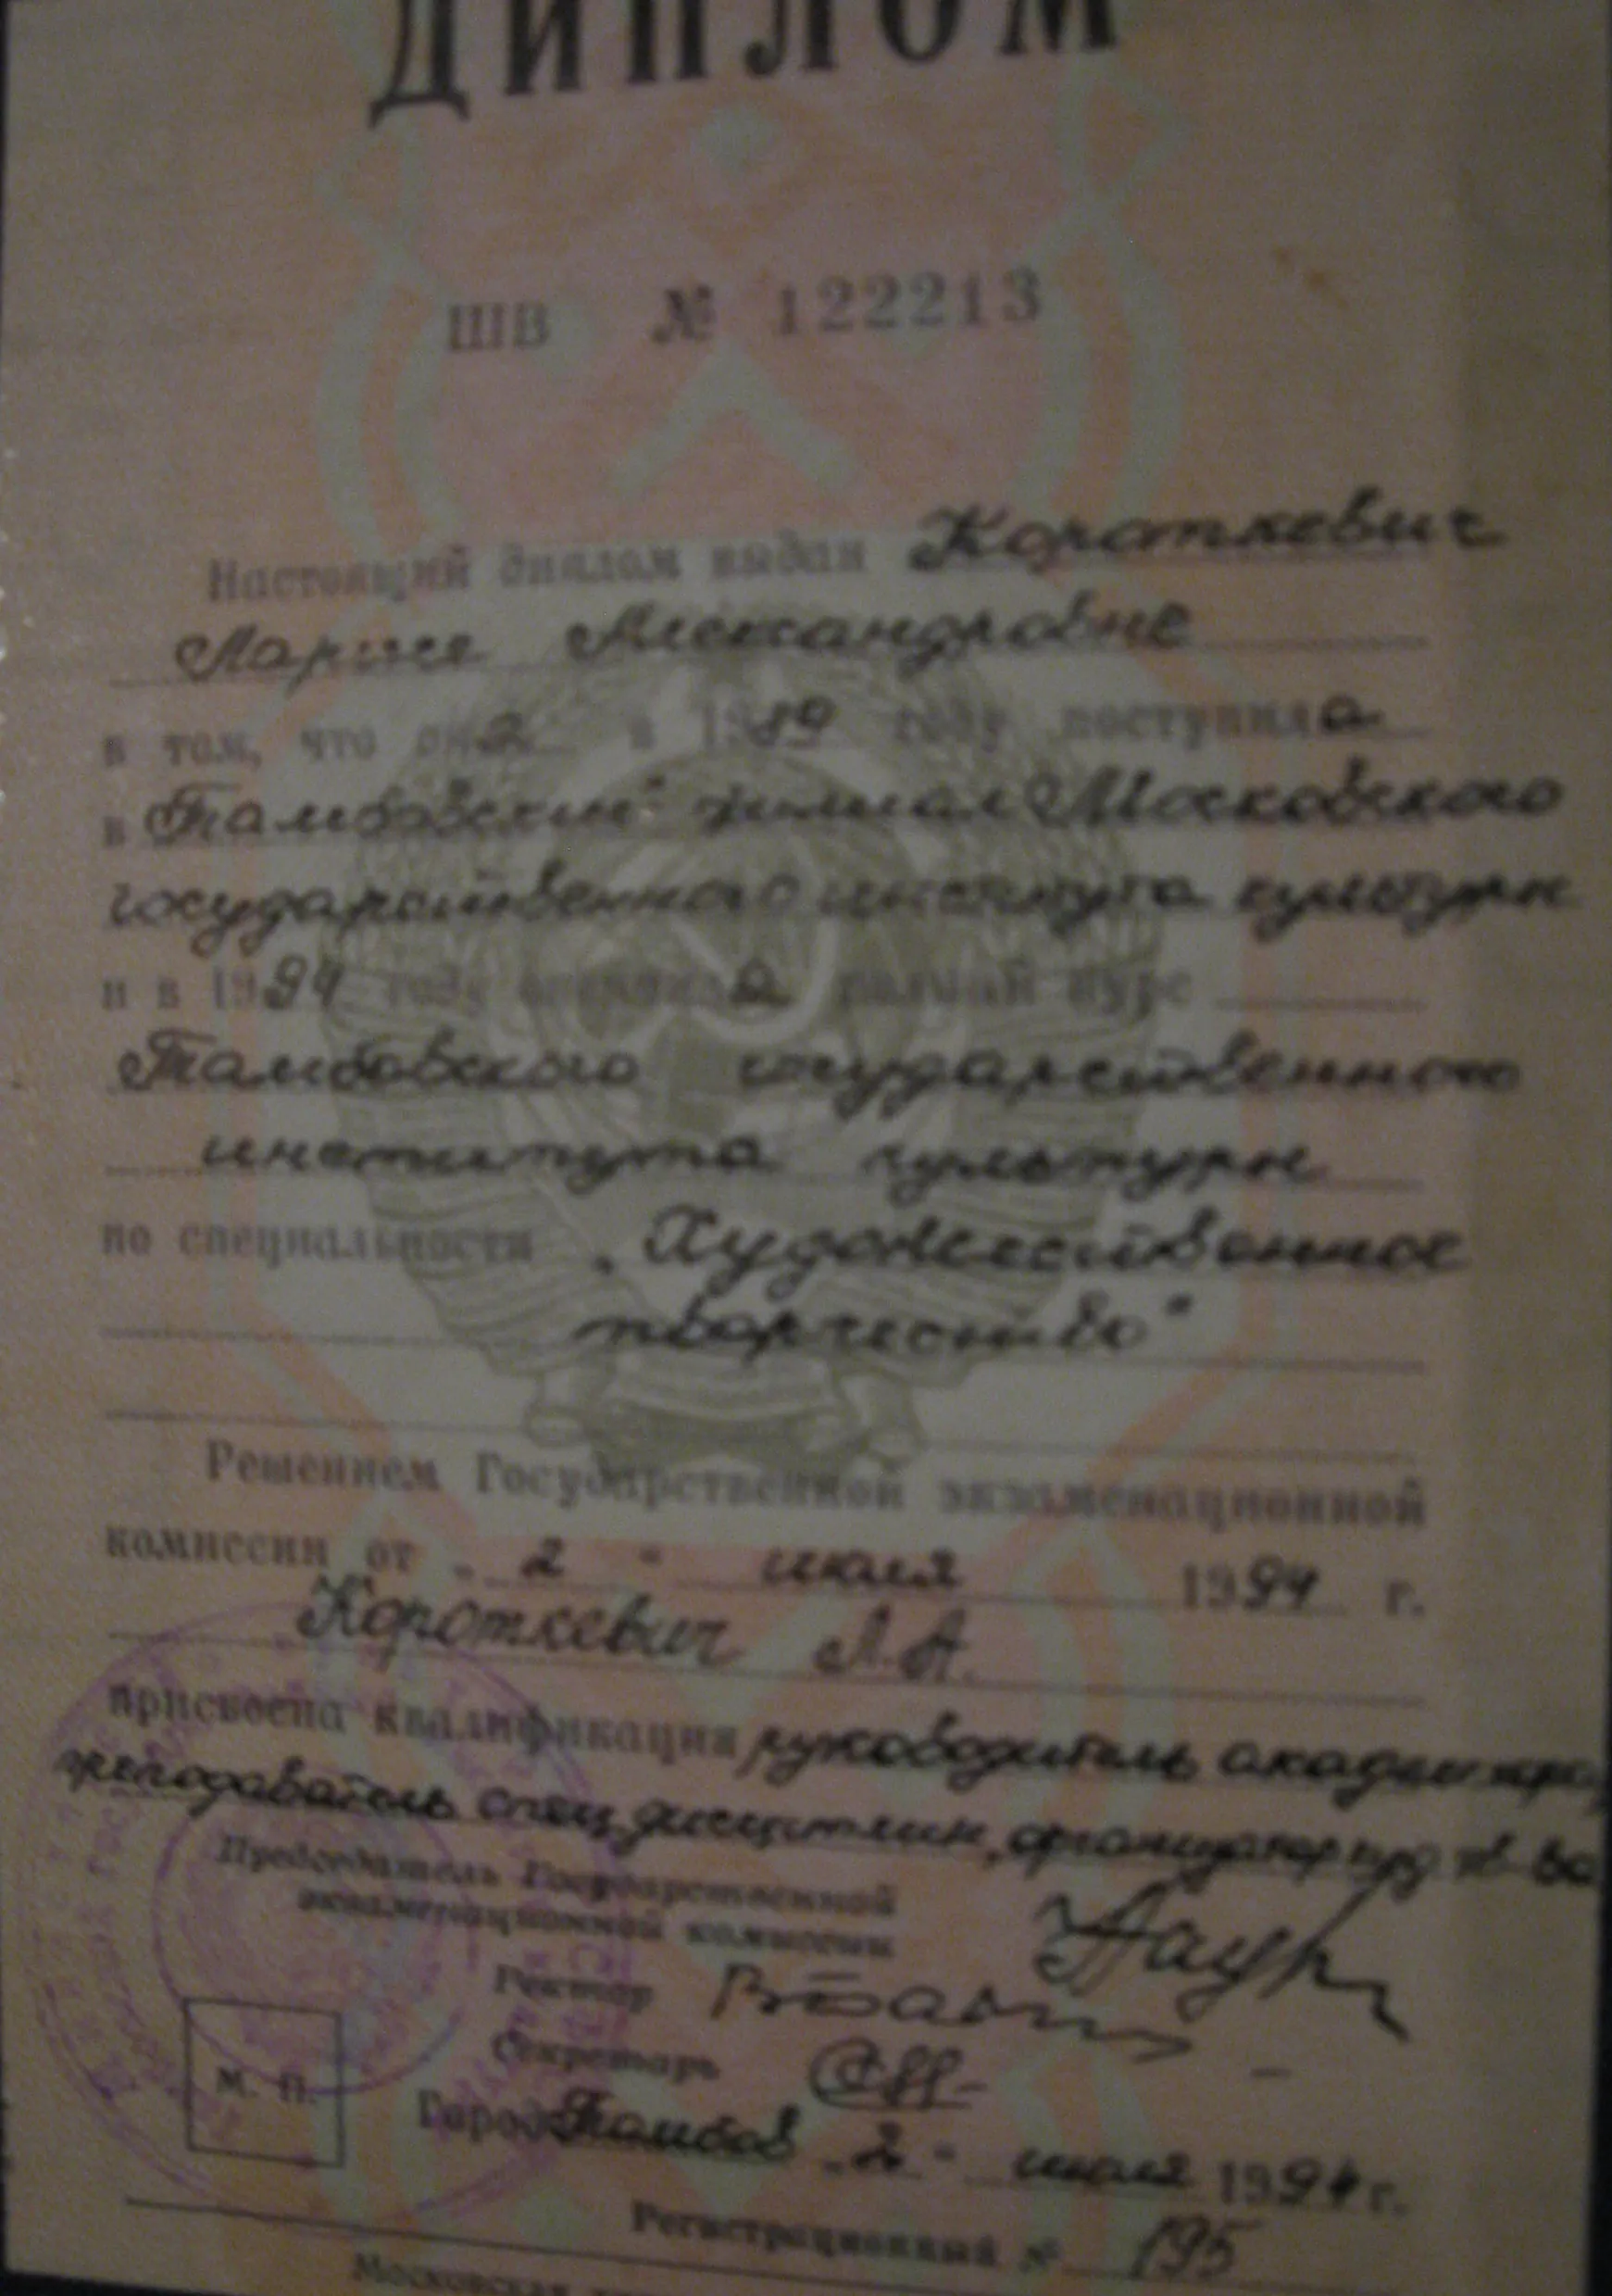 ДИПЛОМ
ШВ № 122213
Настоящий диплом выдан Короткевич
Ларисе Александровне
в том, что она в 1989 году поступила
в Тамбовский филиал Московского
государственного института культуры
и в 1994 году окончила полный курс
Тамбовского государственного
института культуры
по специальности „Художественное
творчество"
Решением Государственной экзаменационной
комиссии от „2" июля 1994 г.
Короткевич Л.А.
присвоена квалификация руководитель академ. хора,
преподаватель спец. дисциплин, организатор худ. тв-ва
Председатель Государственной
экзаменационной комиссии
Ректор
Секретарь
М. П.
Город Тамбов „2" июля 1994 г.
Регистрационный № 195
Московская